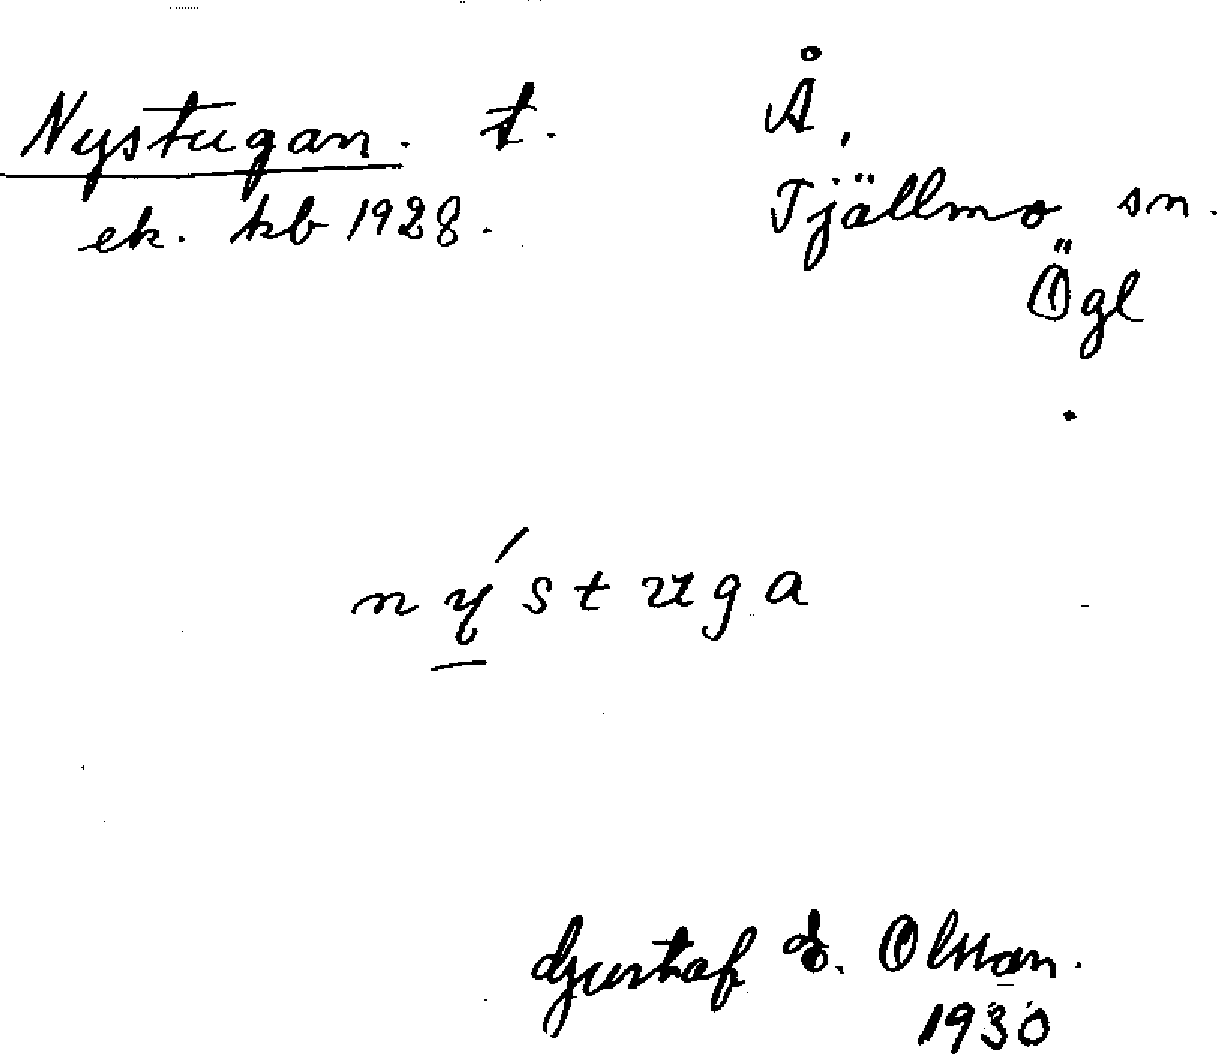 Nystugan. t. Å,
ek. kb 1928. Tjällmo sn.
Ögl
nýstuga
Gustaf E. Olsson.
1930